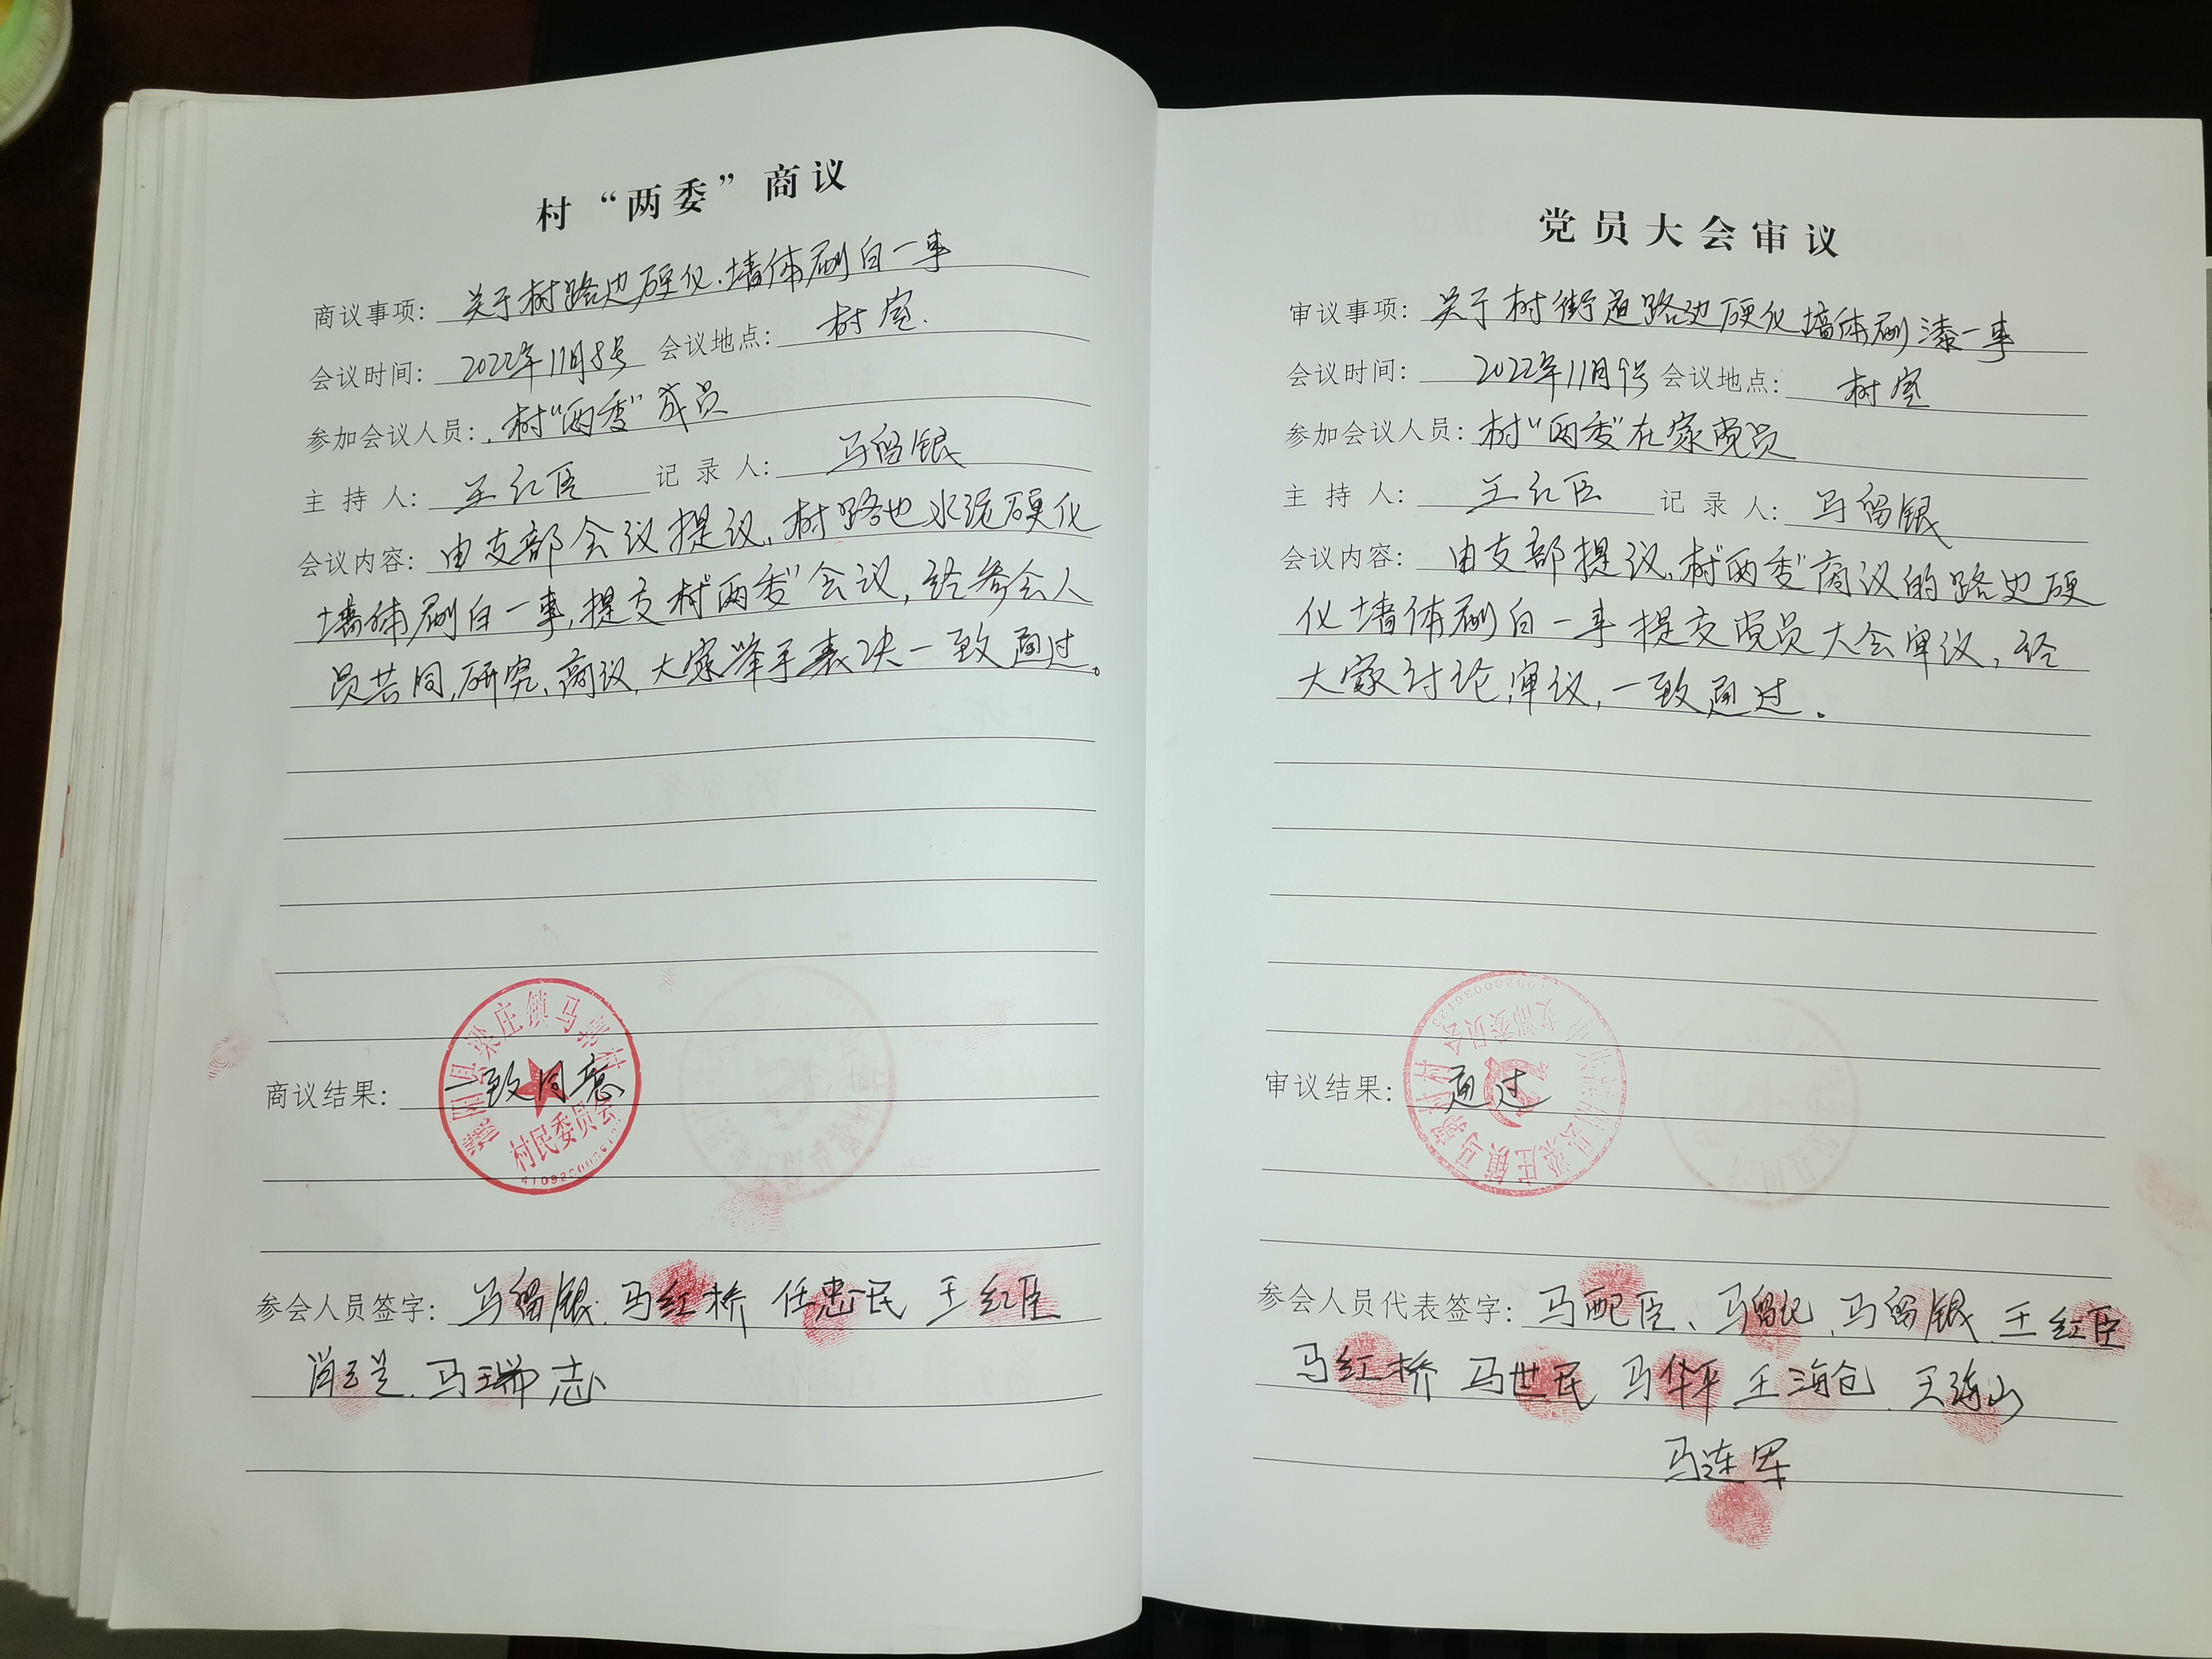 村“两委”商议
商议事项: 关于村路边硬化、墙体刷白一事
会议时间: 2022年11月8号 会议地点: 村室.
参加会议人员: 村“两委”成员
主持人: 王红臣 记录人: 马留银
会议内容: 由支部会议提议,村路边水泥硬化
墙体刷白一事,提交村“两委”会议,经参会人
员共同,研究、商议,大家举手表决一致通过。
商议结果: 一致同意
村民委员会
参会人员签字: 马留银. 马红桥 任忠民 王红臣
马瑞志
党员大会审议
审议事项: 关于村街道路边硬化墙体刷漆一事
会议时间: 2022年11月9号 会议地点: 村室
参加会议人员: 村“两委”在家党员
主持人: 王红臣 记录人: 马留银
会议内容: 由支部提议,村“两委”商议的路边硬
化墙体刷白一事提交党员大会审议,经
大家讨论,审议,一致通过。
审议结果: 通过
参会人员代表签字: 马配臣、马留记、马留银、王红臣
马红桥 马世民 马华平 王海仓. 王海山
马连军